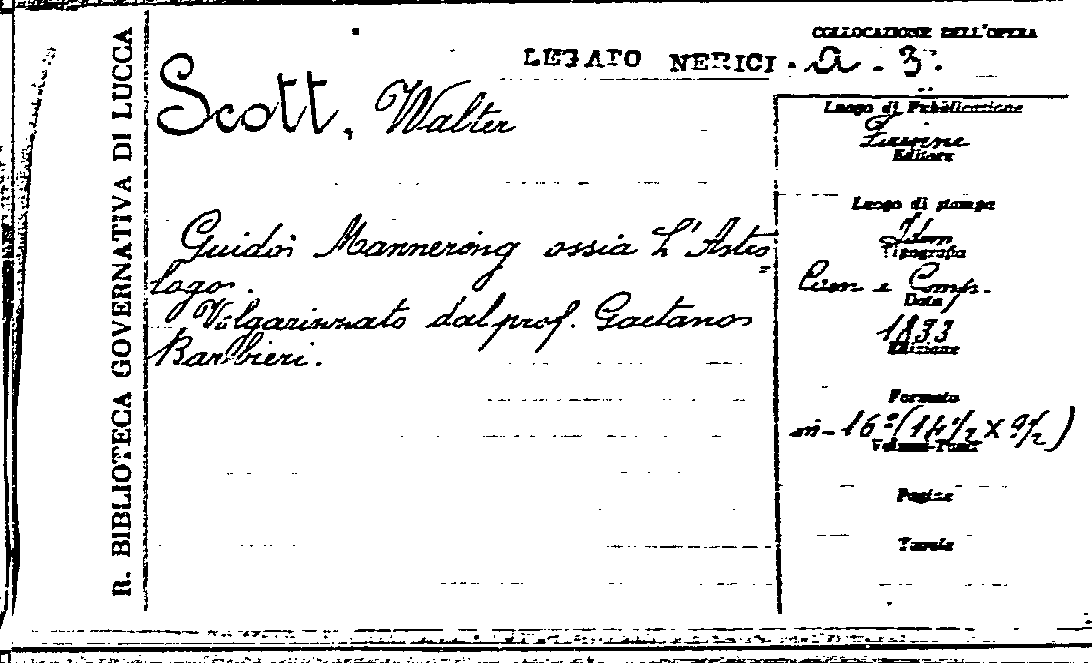 R. BIBLIOTECA GOVERNATIVA DI LUCCA
COLLOCAZIONE DELL'OPERA
LEGATO NERICI . a . 3.
Scott, Walter
Guidoi Mannering ossia L'Astro=
logo.
Volgarizzato dal prof. Gaetano
Barbieri.
Luogo di Pubblicazione
Firenze
Editore
Luogo di stampa
Idem
Tipografia
Com e Comp.
Data
1833
Edizione
Formato
in-16º (14½ X 9½)
Volume-Tomi
Pagine
Tavole